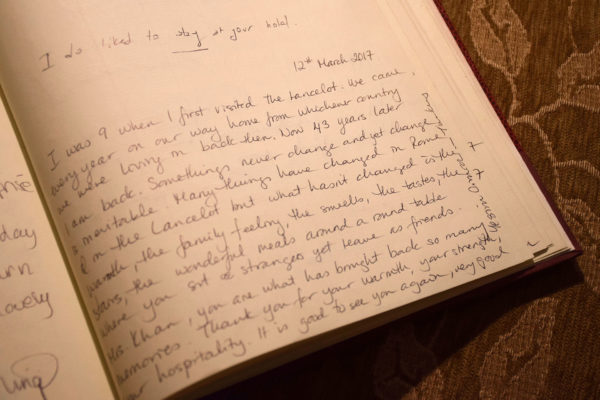 I do liked to stay at your hotel.
12th March 2017
I was 9 when I first visited the Lancelot. We came,
every year on our way home from whichever country
we were living in back then. Now 43 years later
I am back. Somethings never change and yet change
is inevitable. Many things have changed in Rome
& in the Lancelot but what hasn't changed is the
warmth, the family feeling, the smells, the tastes, the
stairs, the wonderful meals around a round table
where you sit @ strangers yet leave as friends.
Mrs. Khan, you are what has brought back so many
memories. Thank you for your warmth, your strength,
your hospitality. It is good to see you again, very good
day
lovely